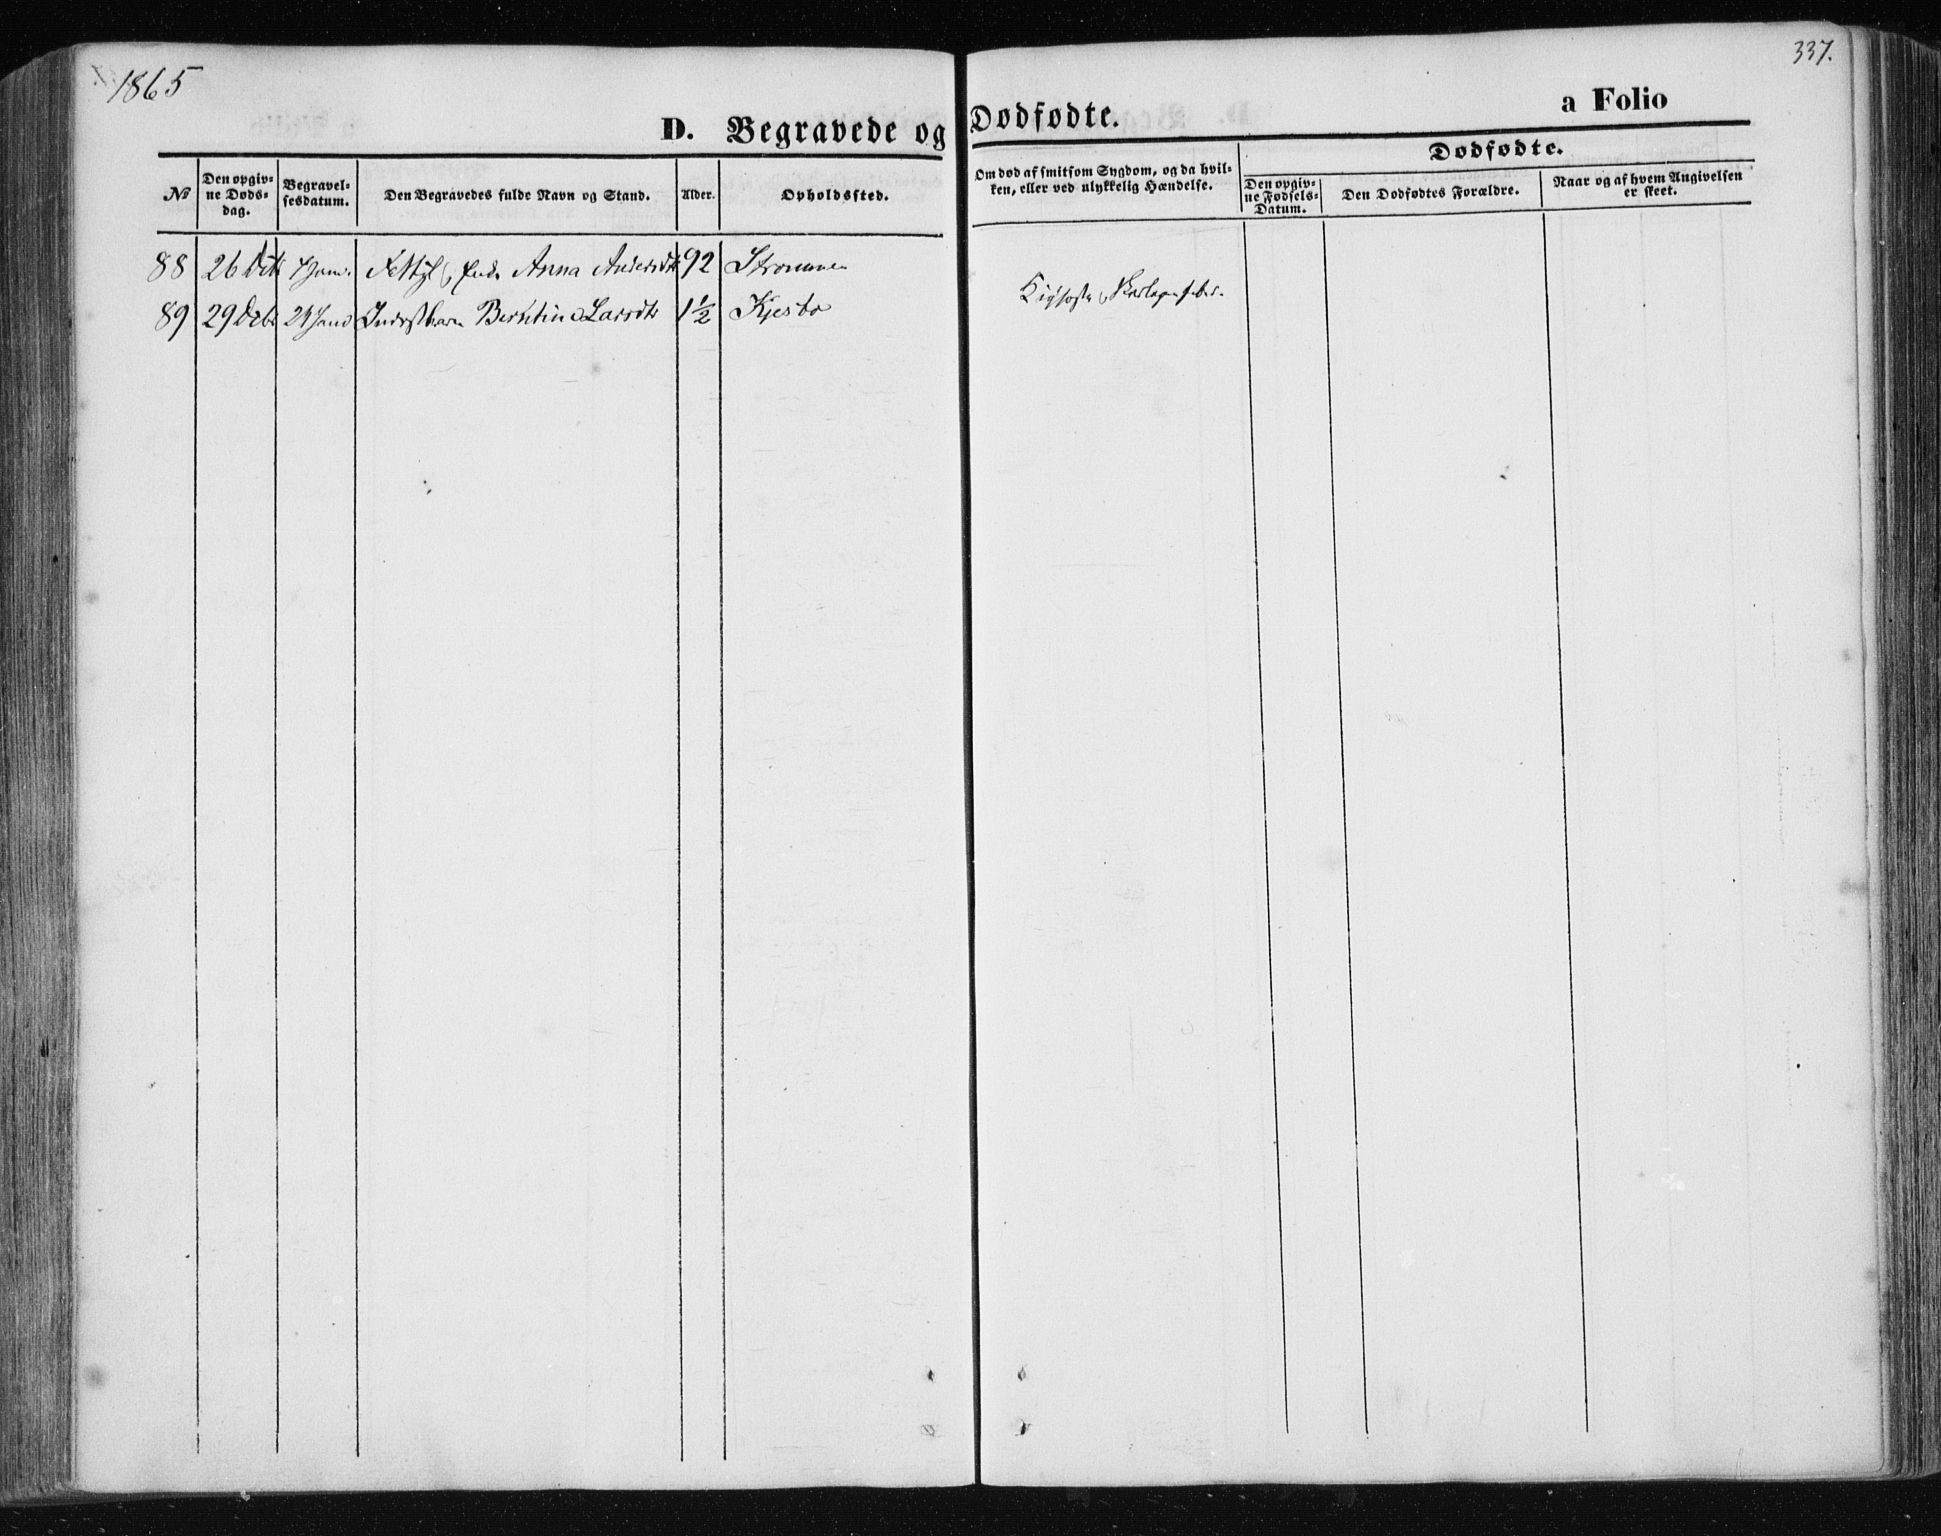 1865
337.
D. Begravede og Dødfødte.
a Folio
No
Den opgiv-
ne Døds-
dag.
Begravel-
sesdatum.
Den Begravedes fulde Navn og Stand.
Alder.
Opholdssted.
Om død af smitsom Sygdom, og da hvil-
ken, eller ved ulykkelig Hændelse.
Dødfødte.
Den opgiv-
ne Fødsels-
Datum.
Den Dødfødtes Forældre.
Naar og af hvem Angivelsen
er skeet.
88 26 Anna 92 Strømmen
89 29 Decbr 24 Berntine Larsdtr 1½ Kjesbo
Kighoste